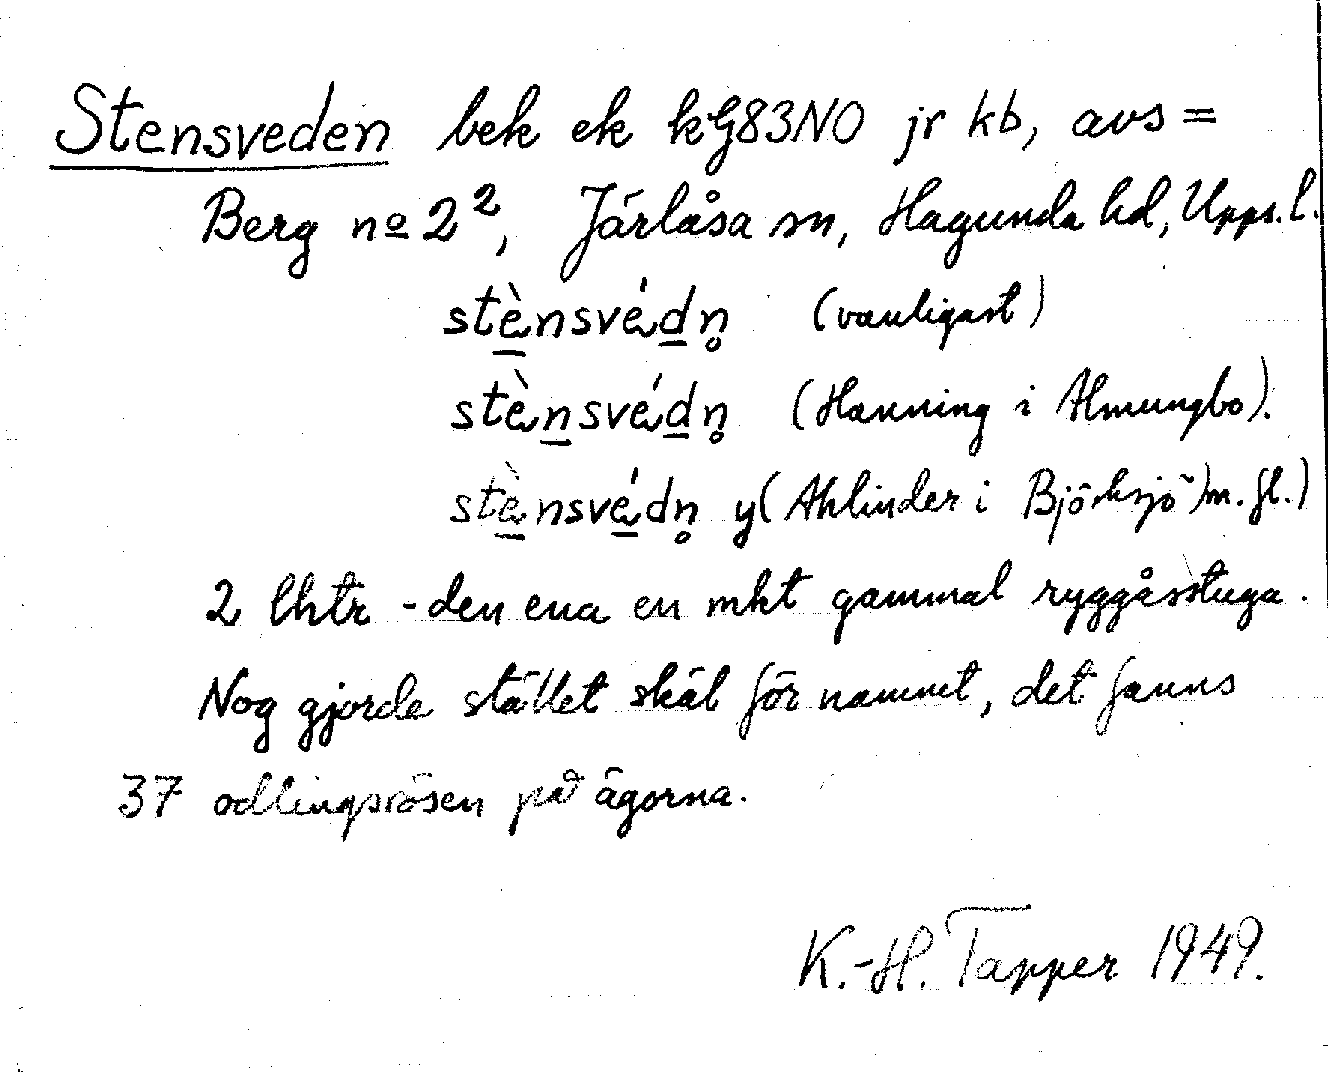 Stensveden bek ek kG83NO jr kb, avs =
Berg no 2², Järlåsa sn, Hagunda hd, Upps. l.
stè̱nsvéḏn̥ (vanligast)
stèṉsvéḏn̥ (Hanning i Almungbo).
stè̱nsvé̱dn̥ y (Ahlinder i Björksjö) m. fl.)
2 lhtr - den ena en mkt gammal ryggåsstuga.
Nog gjorde stället skäl för namnet, det fanns
37 odlingsrösen på ägorna.
K.-H. Tapper 1949.